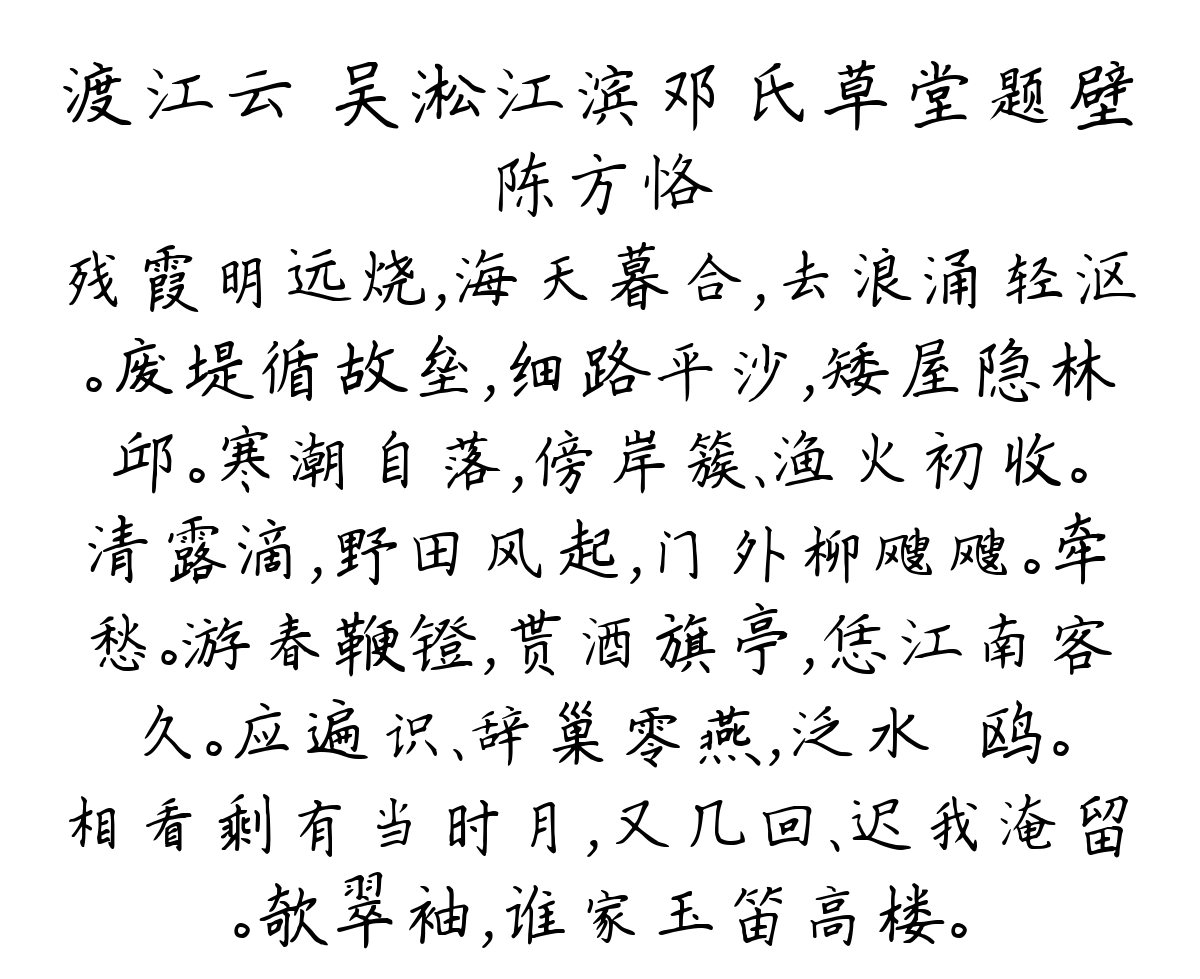 渡江云 吴淞江滨邓氏草堂题壁
陈方恪
残霞明远烧,海天暮合,去浪涌轻沤
。废堤循故垒,细路平沙,矮屋隐林
邱。寒潮自落,傍岸簇、渔火初收。
清露滴,野田风起,门外柳飕飕。牵
愁。游春鞭镫,贳酒旗亭,恁江南客
久。应遍识、辞巢零燕,泛水 鸥。
相看剩有当时月,又几回、迟我淹留
。欹翠袖,谁家玉笛高楼。